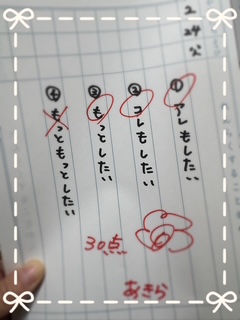 2
24
①アレもしたい
②コレもしたい
③もっとしたい
④もっともっとしたい
30点
あきら